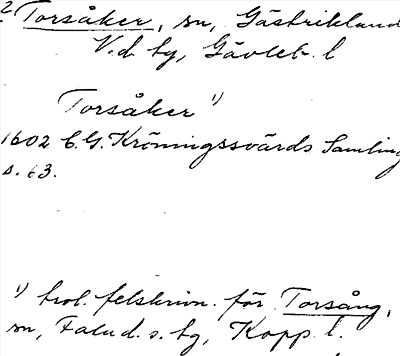 2 Torsåker, sn, Gästrikland
V. d. tg, Gävleb. l
Torsåker 1)
1602 C.G. Kröningssvärds Samling
s. 63.
1) trol. felskrivn. för Torsång,
sn, Falu d. s. tg, Kopp. l.